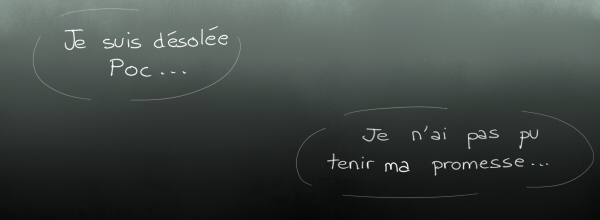 Je suis désolée
Poc...
Je n'ai pas pu
tenir ma promesse...